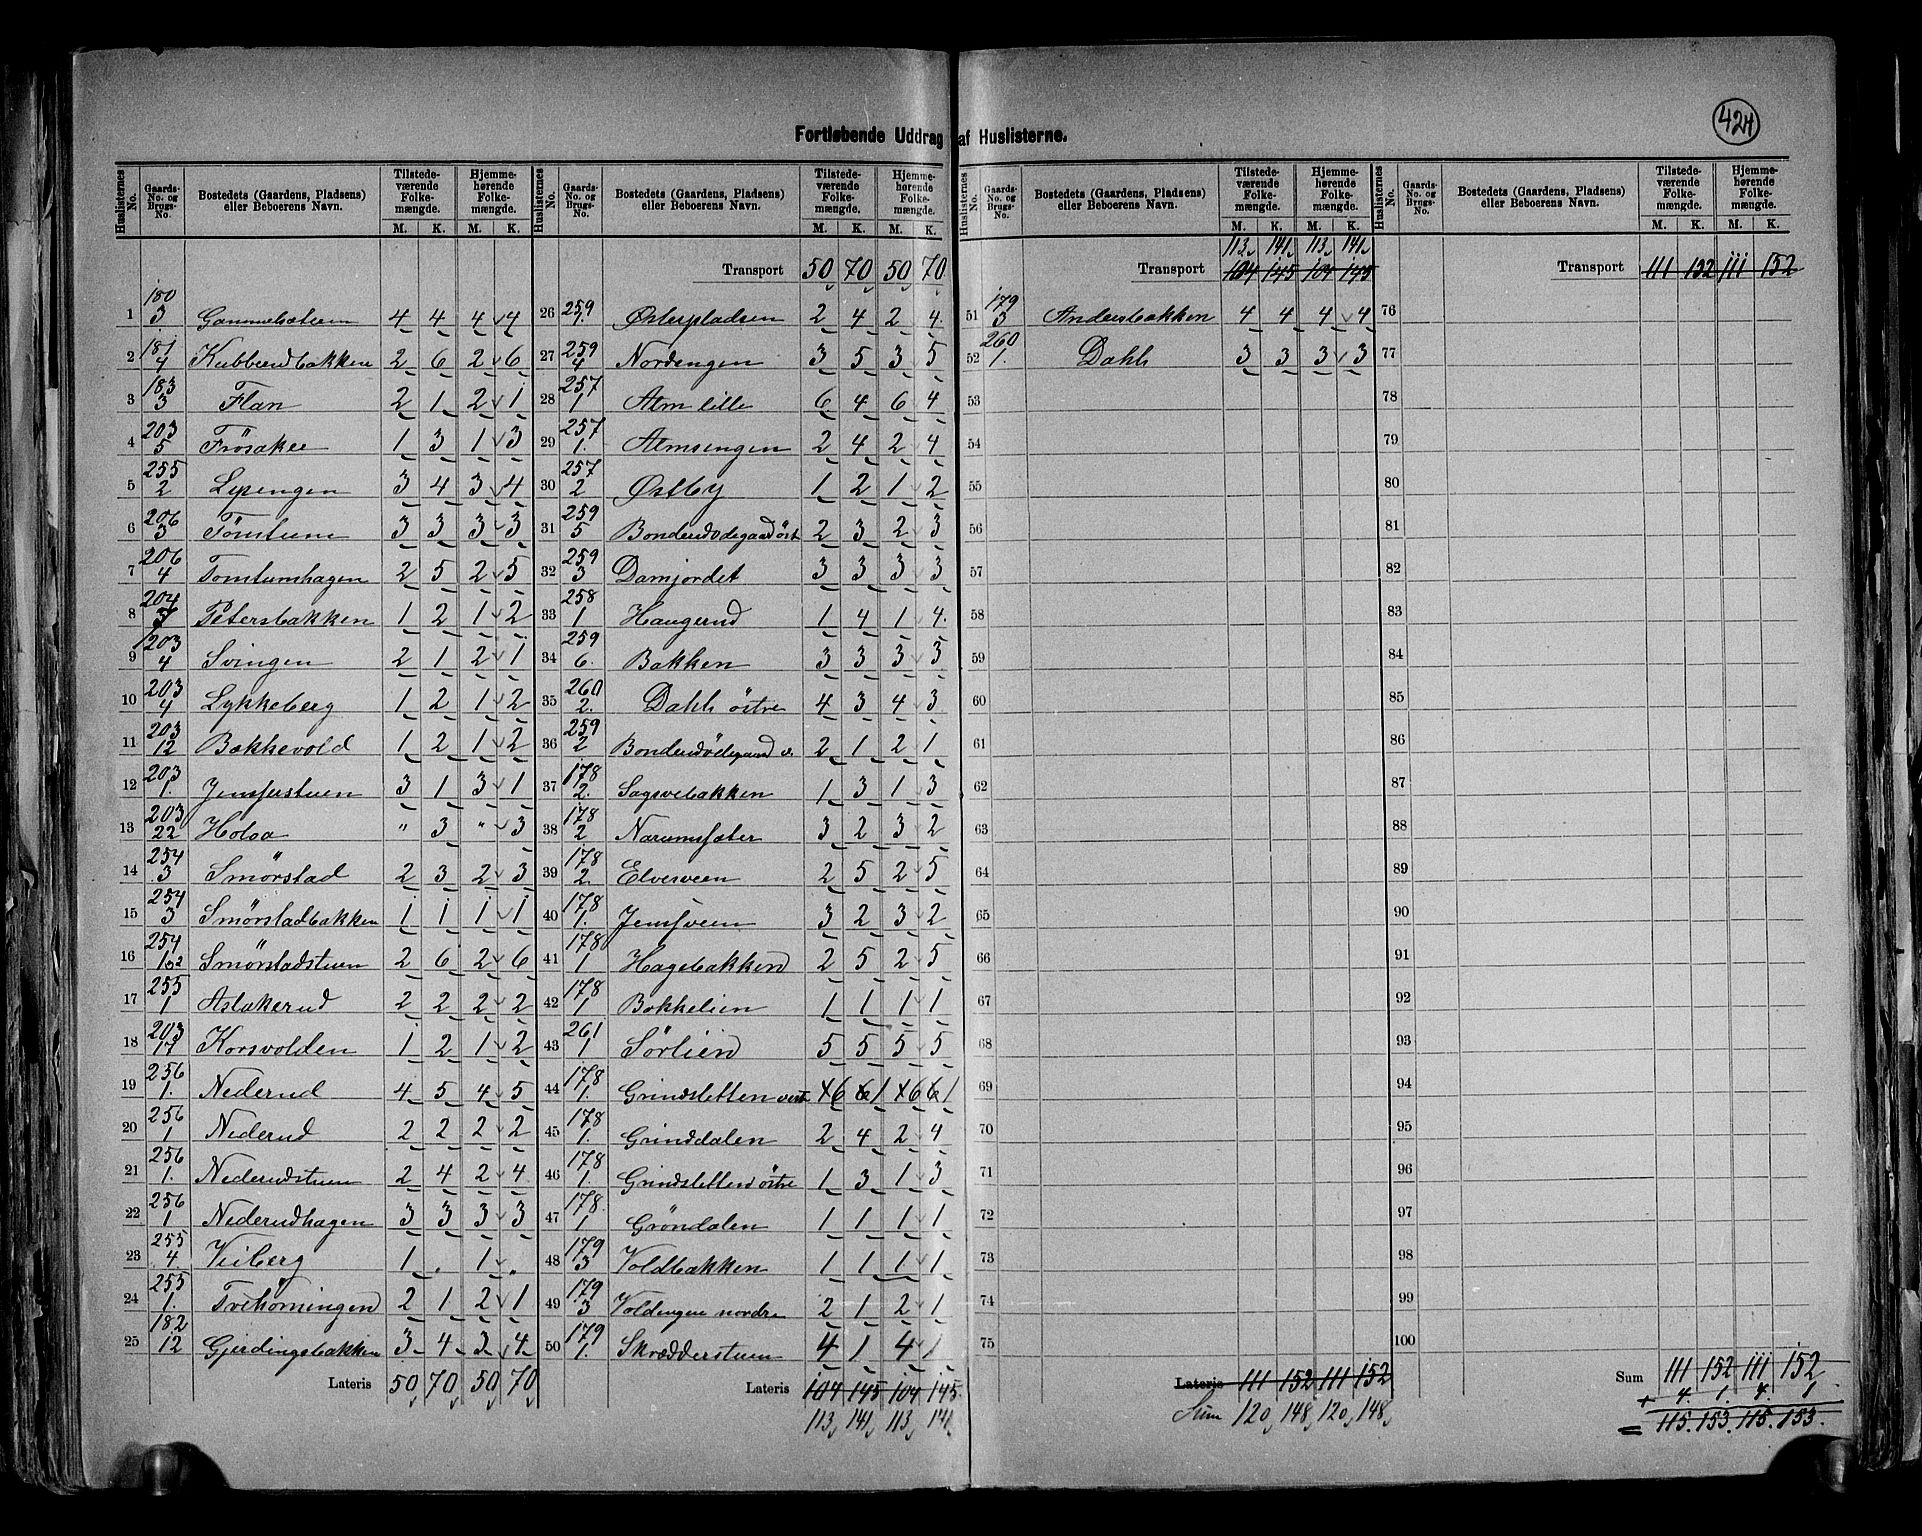 424
Fortløbende Uddrag af Huslisterne.
Huslisternes No. Gaards-No. og Brugs-No. Bostedets (Gaardens, Pladsens) eller Beboerens Navn. Tilstedeværende Folkemængde. Hjemmehørende Folkemængde.
M. K. M. K.
1 180 3. Gammelsæteren 4 4 4 4
2 181 4 Kubberudbakken 2 6 2 6
3 183 3 Flan 2 1 2 1
4 203 5 Frösaker 1 3 1 3
5 255 2 Lysengen 3 4 3 4
6 206 3 Tømtum 3 3 3 3
7 206 4 Tomtumhagen 2 5 2 5
8 204 Petersbakken 1 2 1 2
9 203 4 Svingen 2 1 2 1
10 203 4 Lykkeberg 1 2 1 2
11 203 12 Bakkevold 1 2 1 2
12 203 1. Jensjerstuen 3 1 3 1
13 203 22 Holaa " 3 " 3
14 254 3 Smörstad 2 3 2 3
15 254 3 Smörstadbakken 1 1 1 1
16 254 Smörstadstuen 2 6 2 6
17 255 1 Aslakerud 2 2 2 2
18 203 17 Korsvolden 1 2 1 2
19 256 1. Nederud 4 5 4 5
20 256 1 Nederud 2 2 2 2
21 256 1. Nederudstuen 2 4 2 4
22 256 1 Nederudhagen 3 3 3 3
23 255 4 Veiberg 1 . 1 .
24 255 1. Tvehörningen 2 1 2 1
25 182 12 Gjerdingsbakken 3 4 3 4
Lateris 50 70 50 70
Transport 50 70 50 70
26 259 1. Østerpladsen 2 4 2 4.
27 259 4 Nordengen 3 5 3 5
28 257 1 Alm lille 6 4 6 4
29 257 1. Almsengen 2 4 2 4
30 257 2 Østby 1 2 1 2
31 259 5 Bonderudødegaard öst 2 3 2 3
32 259 3 Damjordet 3 3 3 3
33 258 1 Haugerud 1 4 1 4.
34 259 6. Bakken 3 3 3 3
35 260 2. Dahls östre 4 3 4 3
36 259 2 Bonderudödegaard v. 2 1 2 1
37 178 2. Sagvebakken 1 3 1 3
38 178 2 Narumsæter 3 2 3 2
39 178 2. Elverveen 2 5 2 5
40 178 1. Jensveen 3 2 3 2
41 178 1 Hagebakken 2 5 2 5
42 178 1 Bakkelien 1 1 1 1
43 261 1 Sörlien 5 5 5 5
44 178 1. Grindsletten vest 6 1 6 1
45 178 1. Grinddalen 2 4 2 4
46 178 1. Grindsletten östre 1 3 1 3
47 178. 1 Gröndalen 1 1 1 1
48 179 3 Voldbakken 1 1 1 1
49 179 3 Voldengen nordre 2 1 2 1
50 179 1. Skrædderstuen 4 1 4 1
Lateris 104 145 104 145
113 141 113 141
113 141 113 141
Transport 104 145 104 145
51 179 3 Andersbakken 4 4 4 4
52 260 1. Dahls 3 3 3 3
53
54
55
56
57
58
59
60
61
62
63
64
65
66
67
68
69
70
71
72
73
74
75
Lateris 111 152 111 152
Sum 120 148 120 148
Transport 111 152 111 152
76
77
78
79
80
81
82
83
84
85
86
87
88
89
90
91
92
93
94
95
96
97
98
99
100
Sum 111 152 111 152
+ 4. 1 4. 1
= 115. 153. 115. 153.